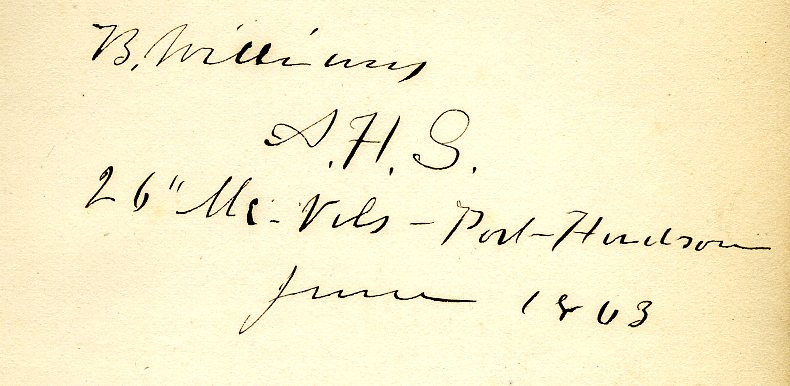 B. Williams
A. H. S.
26" Me. Vols - Port-Hudson
June 1863